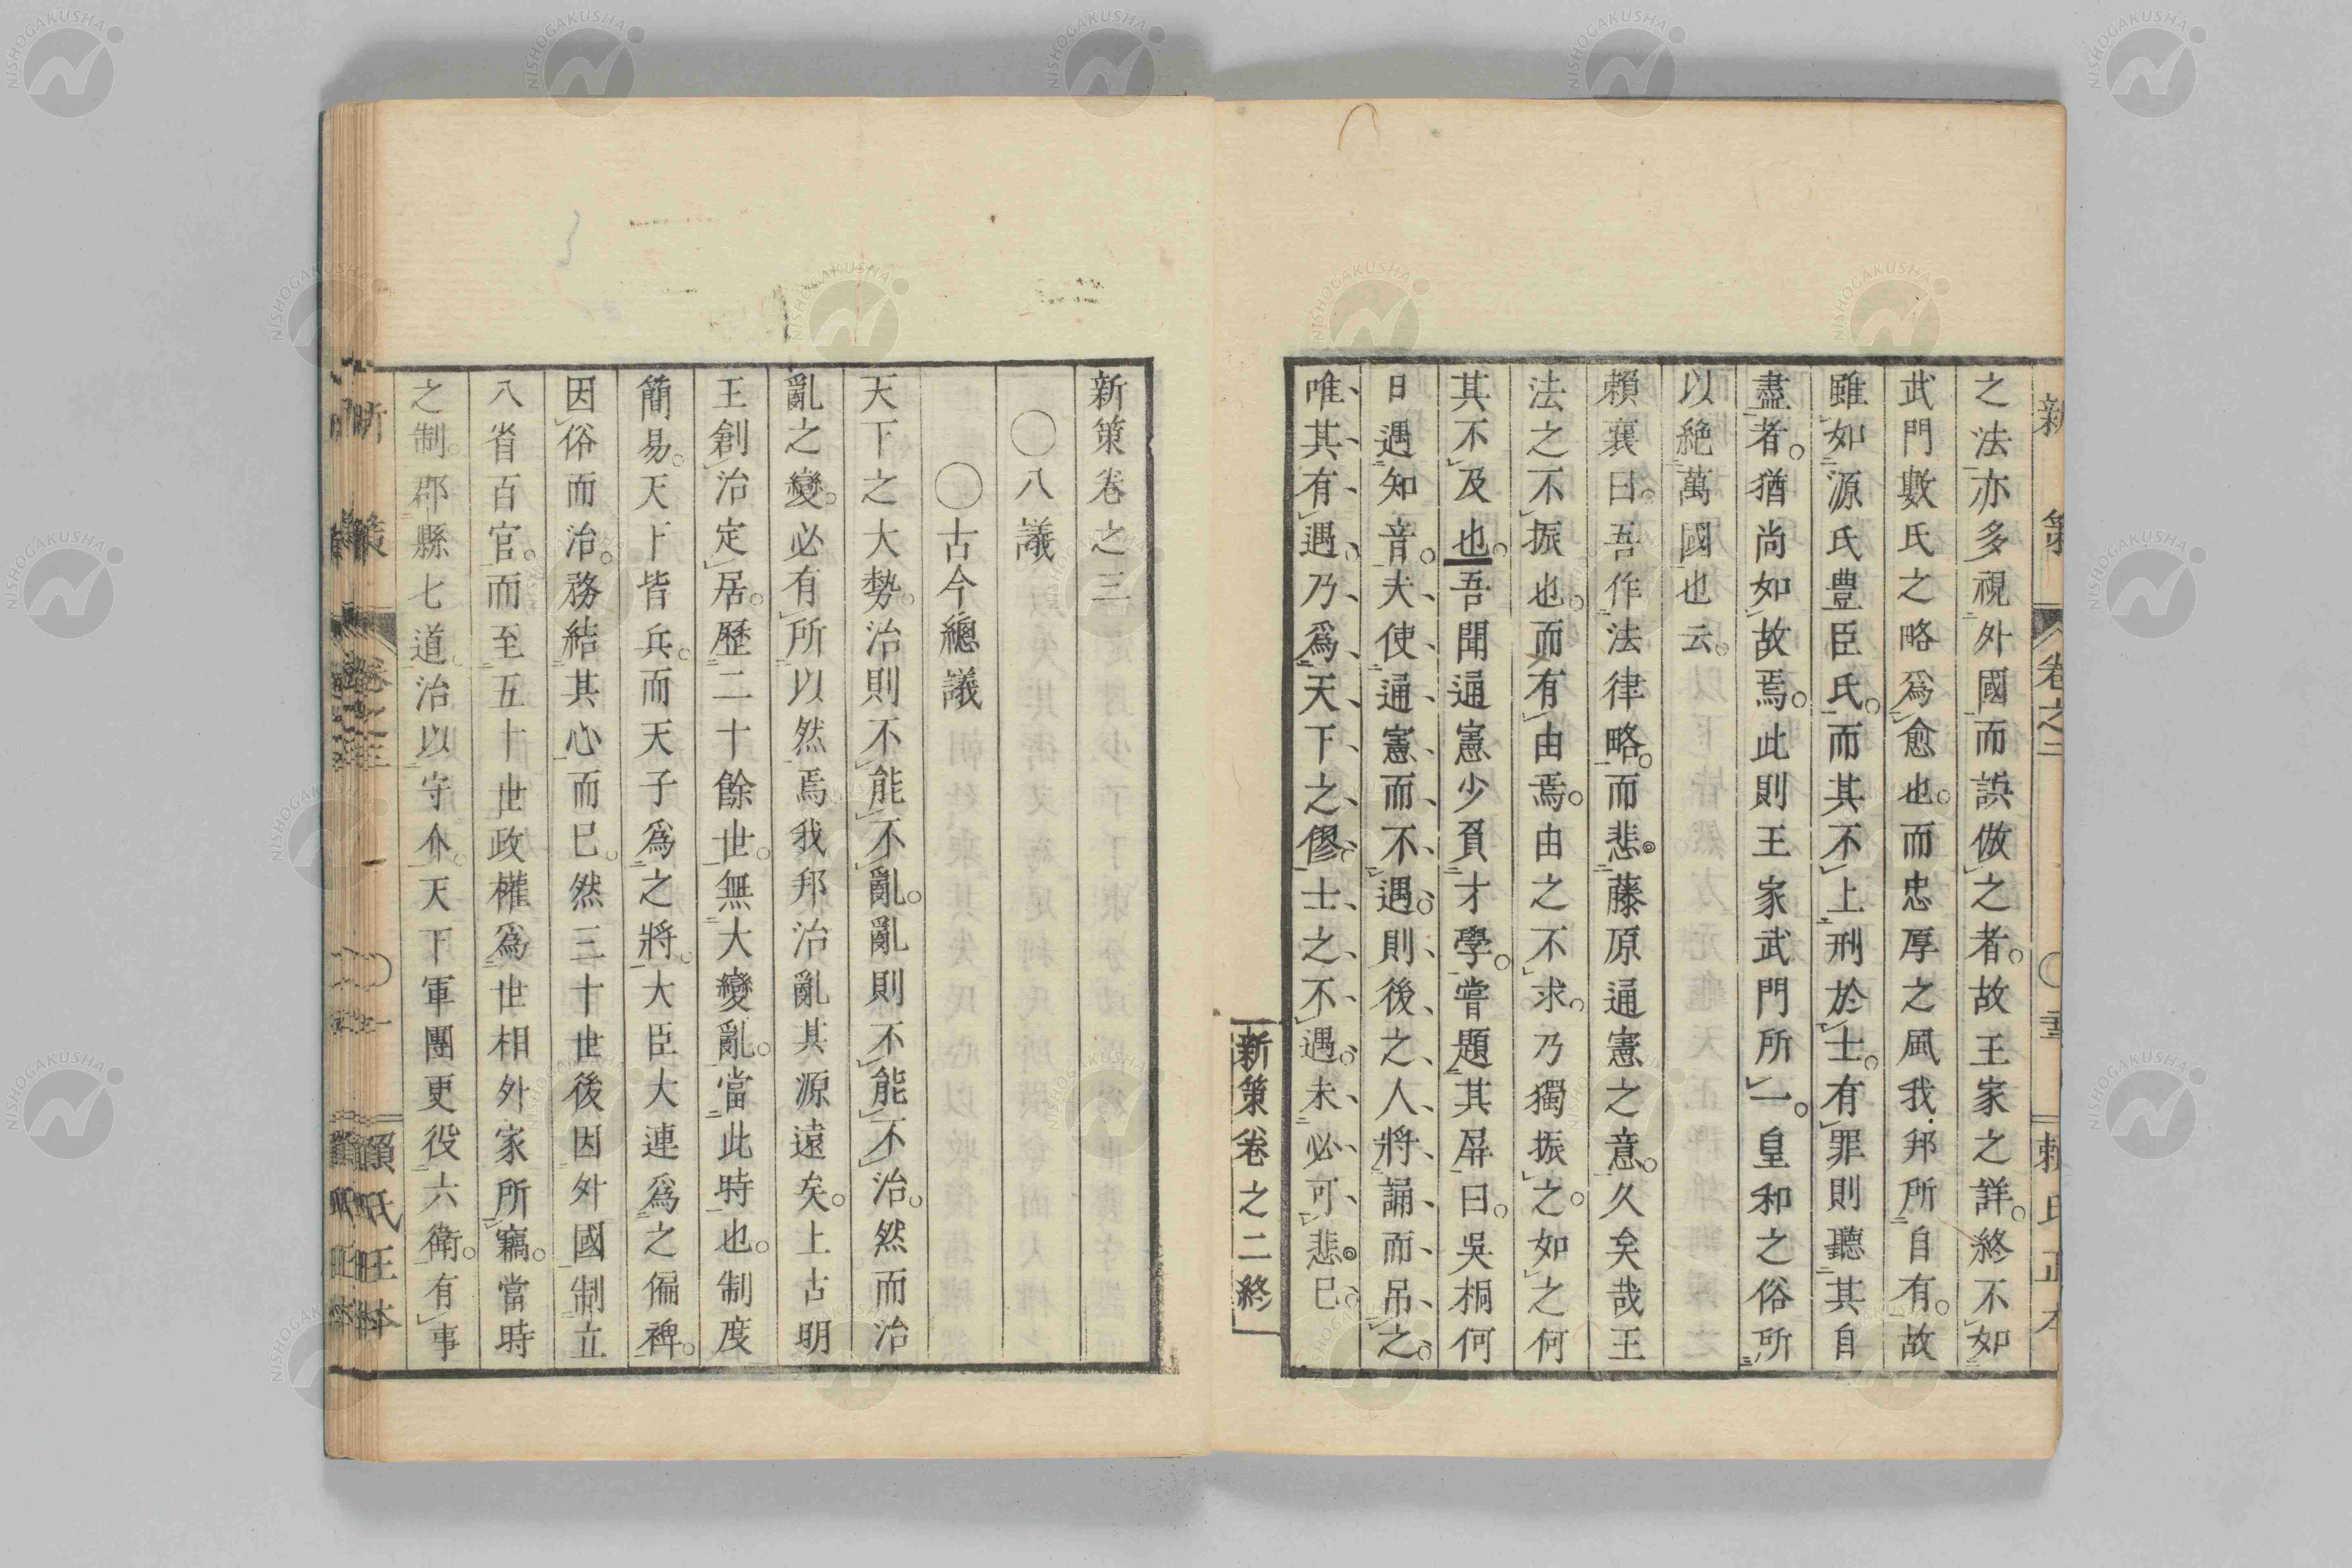 之法亦多視外國而誤倣之者。故王家之詳。終不如
武門數氏之略爲愈也。而忠厚之風我邦所自有。故
雖如源氏豊臣氏。而其不上刑於士。有罪則聽其自
盡者。猶尚如故焉。此則王家武門所一。皇和之俗所
以絶萬國也云。
頼襄曰。吾作法律略。而悲藤原通憲之意。久矣哉王
法之不振也。而有由焉。由之不求。乃獨振之。如之何
其不及也。吾聞通憲少負才學。嘗題其屏曰。吳桐何
日遇知音。夫使通憲而不遇。則後之人將誦而吊之。
唯其有遇。乃爲天下之僇。士之不遇。未必可悲已。
新策卷之二終
新策卷之三
〇八議
〇古今總議
天下之大勢。治則不能不亂。亂則不能不治。然而治
亂之變。必有所以然焉我邦治亂其源遠矣。上古明
王創治定居。歷二十餘世。無大變亂。當此時也。制度
簡易。天下皆兵。而天子爲之將。大臣大連爲之偏裨。
因俗而治。務結其心而已。然三十世後因外國制立
八省百官。而至五十世政權爲世相外家所竊。當時
之制。郡縣七道。治以守介。天下軍團更役六衛。有事
新 策
卷之二
新 策
卷之三
〇一
頼氏正本
NISHOGAKUSHA